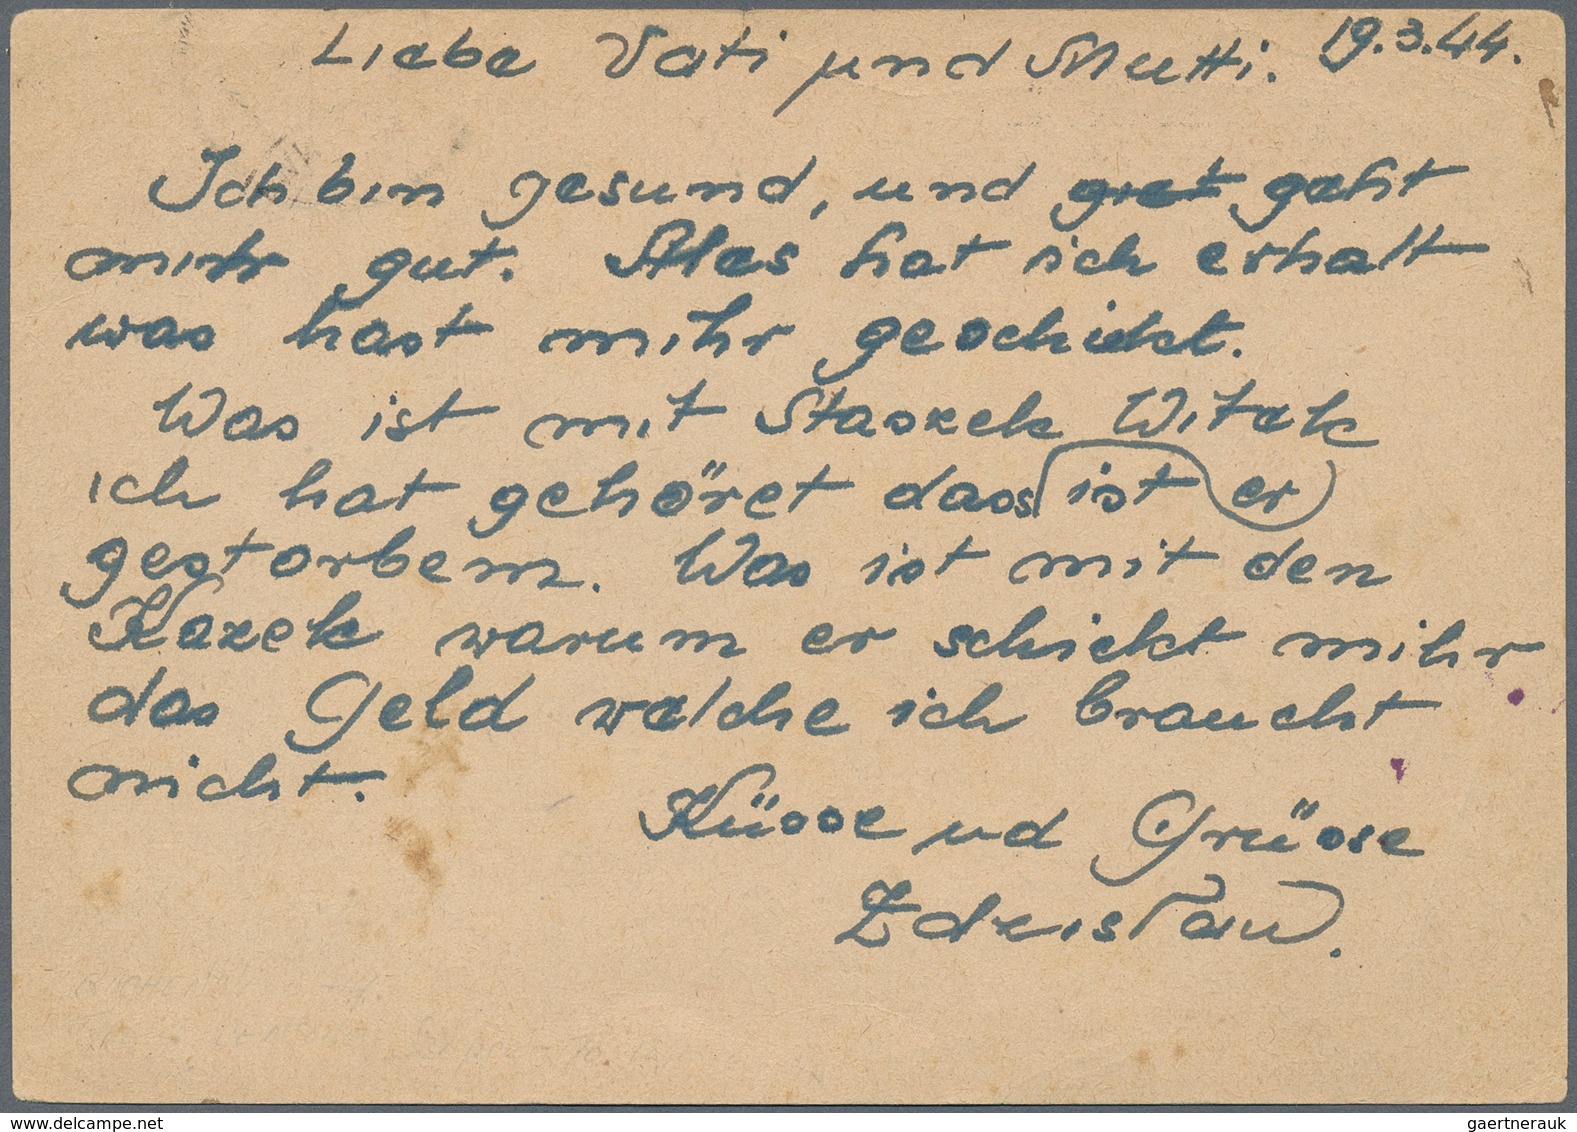 19.3.44.
Liebe Vati und Mutti.
Ich bin gesund, und giet geht
mihr gut. Alles hat ich erhalt
was hast mihr geschickt.
Was ist mit Staszek Witek
ich hat gehöret dass ist er
gestorbem. Was ist mit den
Kazek warum er schickt mihr
das Geld welche ich braucht
nicht.
Küsse ud Grüsse
Zdzisław.
www.delcampe.net
gaertnerauk